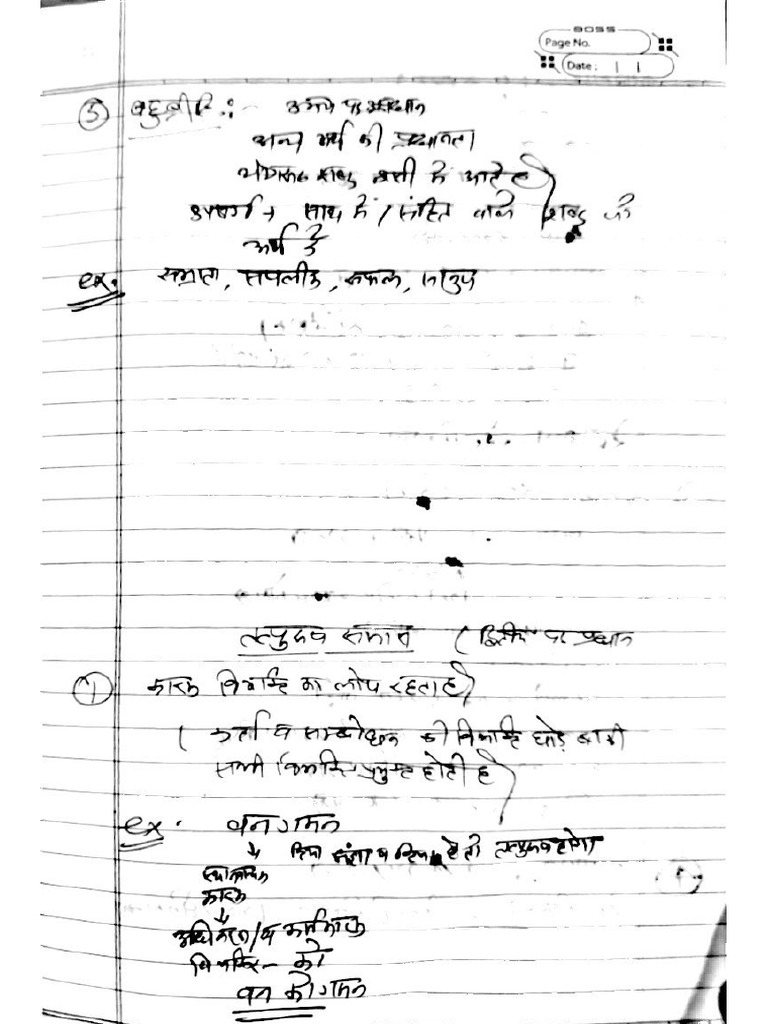 BOSS
Page No.
Date :
⑤ बहुव्रीहि :
अन्य अर्थ की प्रधानता
योगरूढ़ शब्द इसी में आते है)
उपसर्ग → साथ में / सहित वाले शब्द को
अर्थ में
ex. सपत्नीक, सफल,
तत्पुरुष समास ( द्वितीय पद प्रधान
① कारक विभक्ति का लोप रहता है)
( कर्ता व सम्बोधन की विभक्ति छोड़ बाकी
सभी विभक्ति प्रयुक्त होती है )
ex. वनगमन
संज्ञा व क्रिया हो तो तत्पुरुष होगा
कारक
अधिकरण/व कर्मकारक
विभक्ति - को
वन को गमन